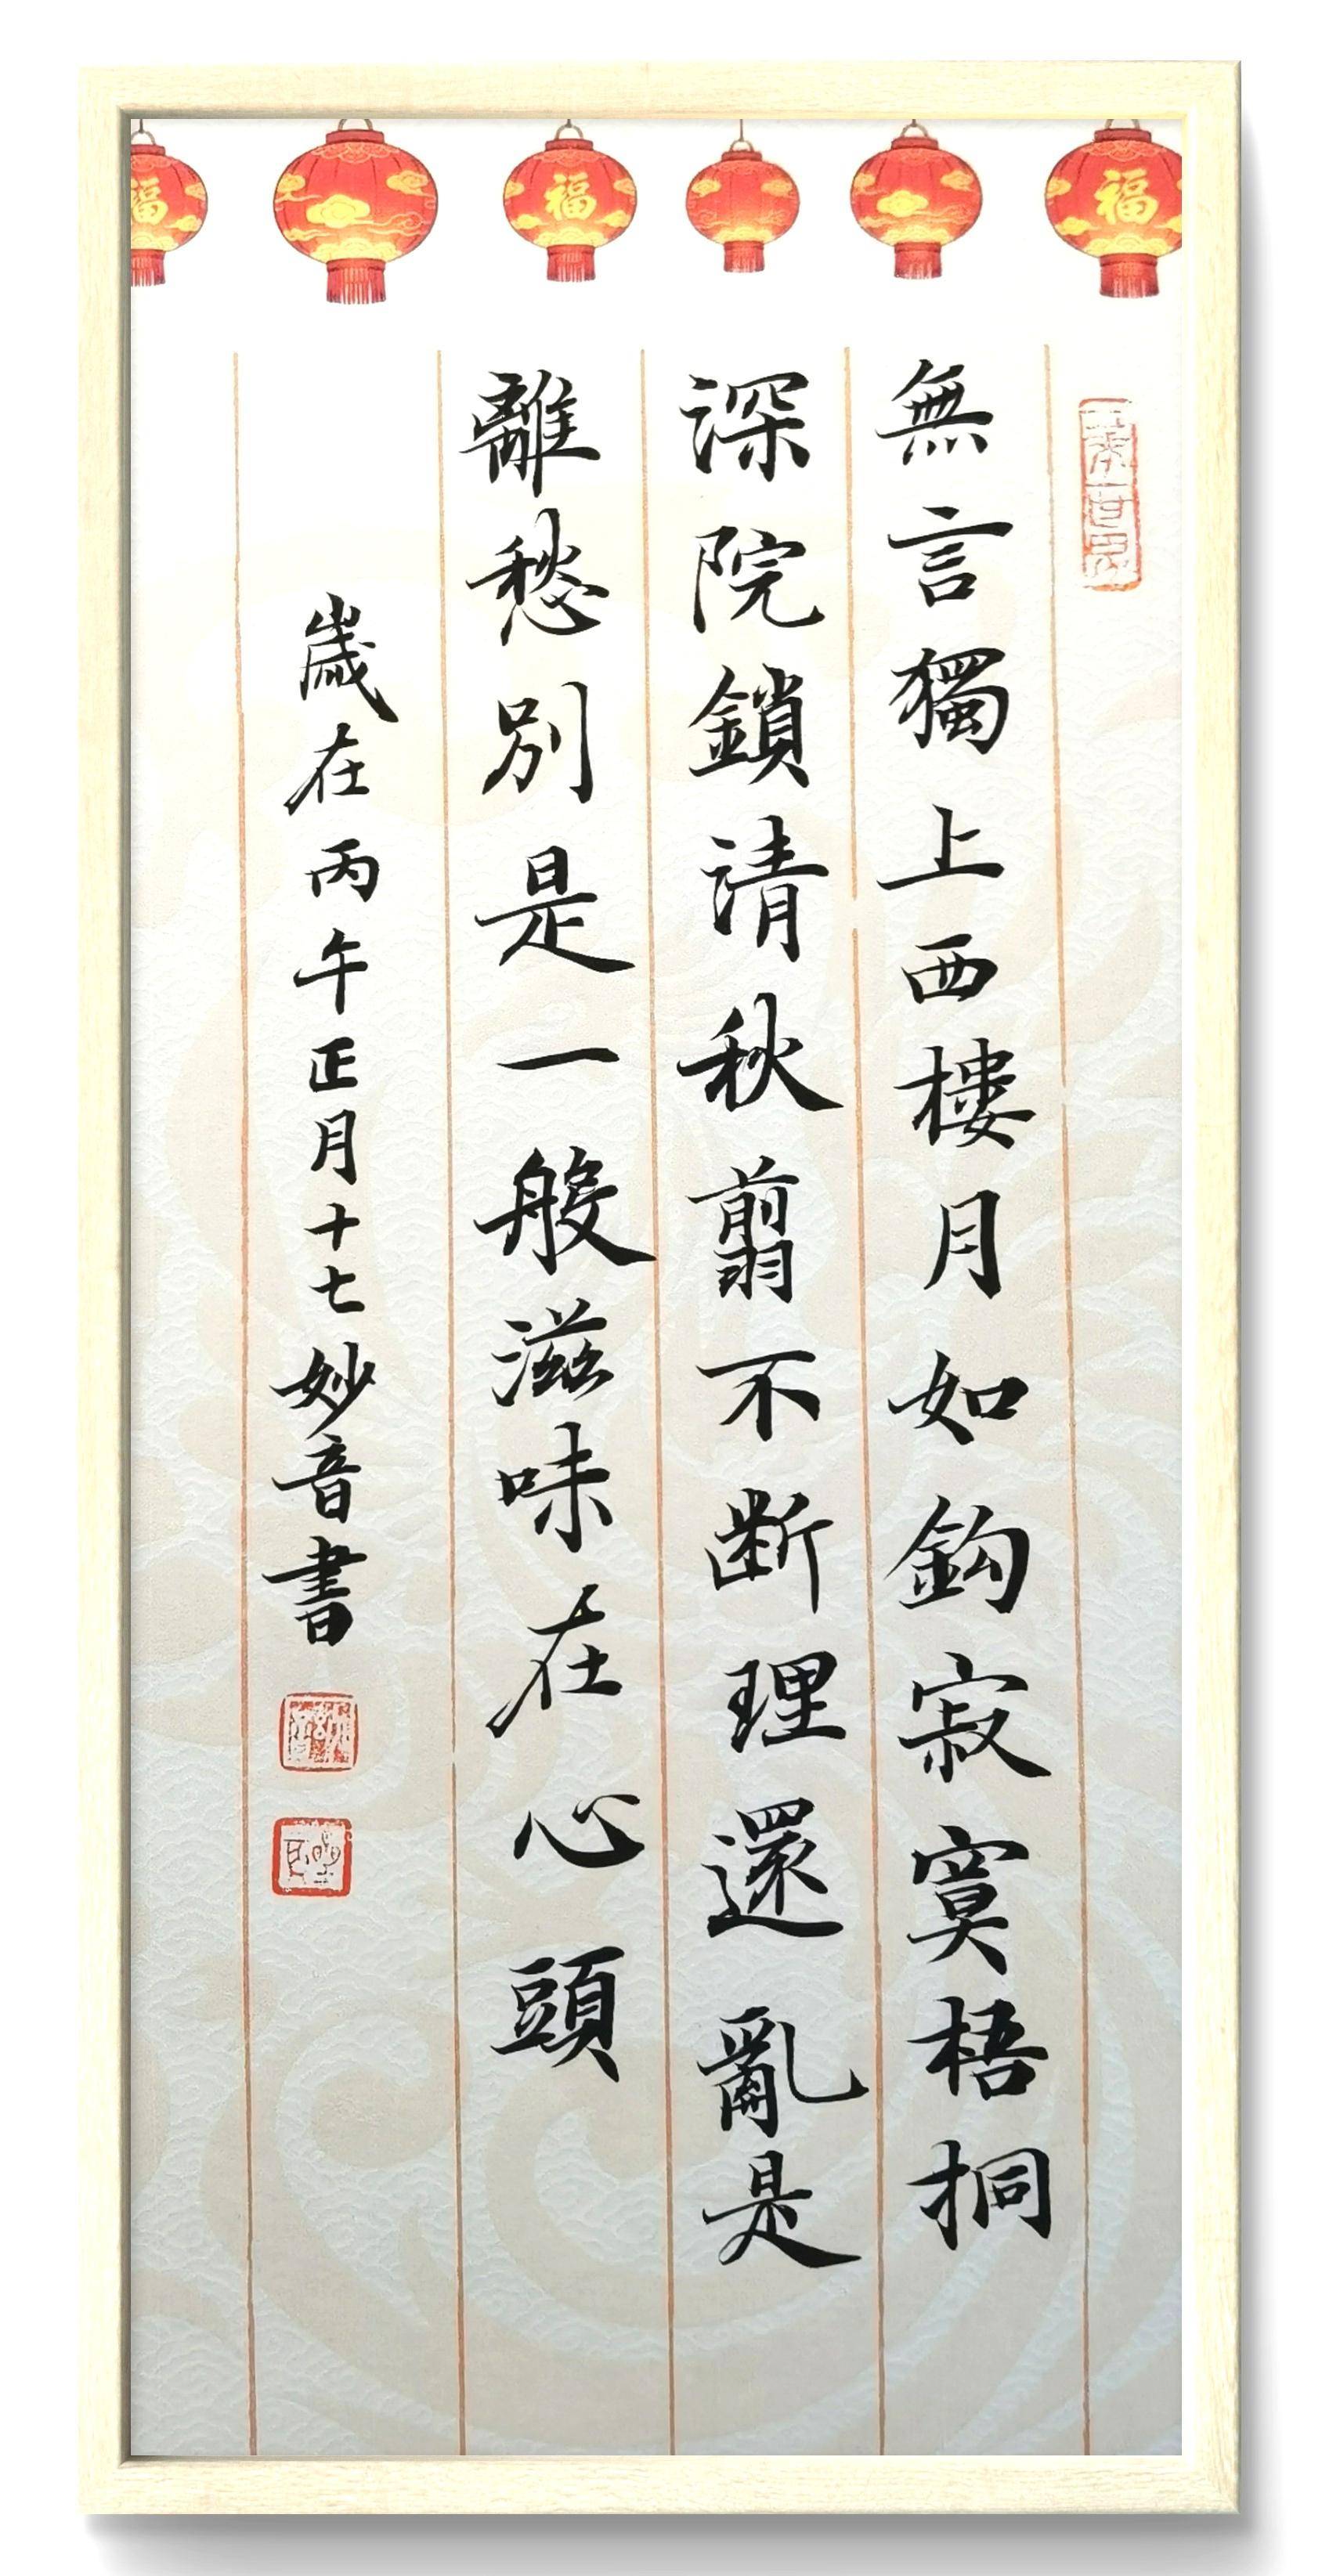 福 福 福
無言獨上西樓月如鈎寂寞梧桐
深院鎖清秋翦不断理還亂是
離愁別是一般滋味在心頭
歲在丙午正月十七妙音書